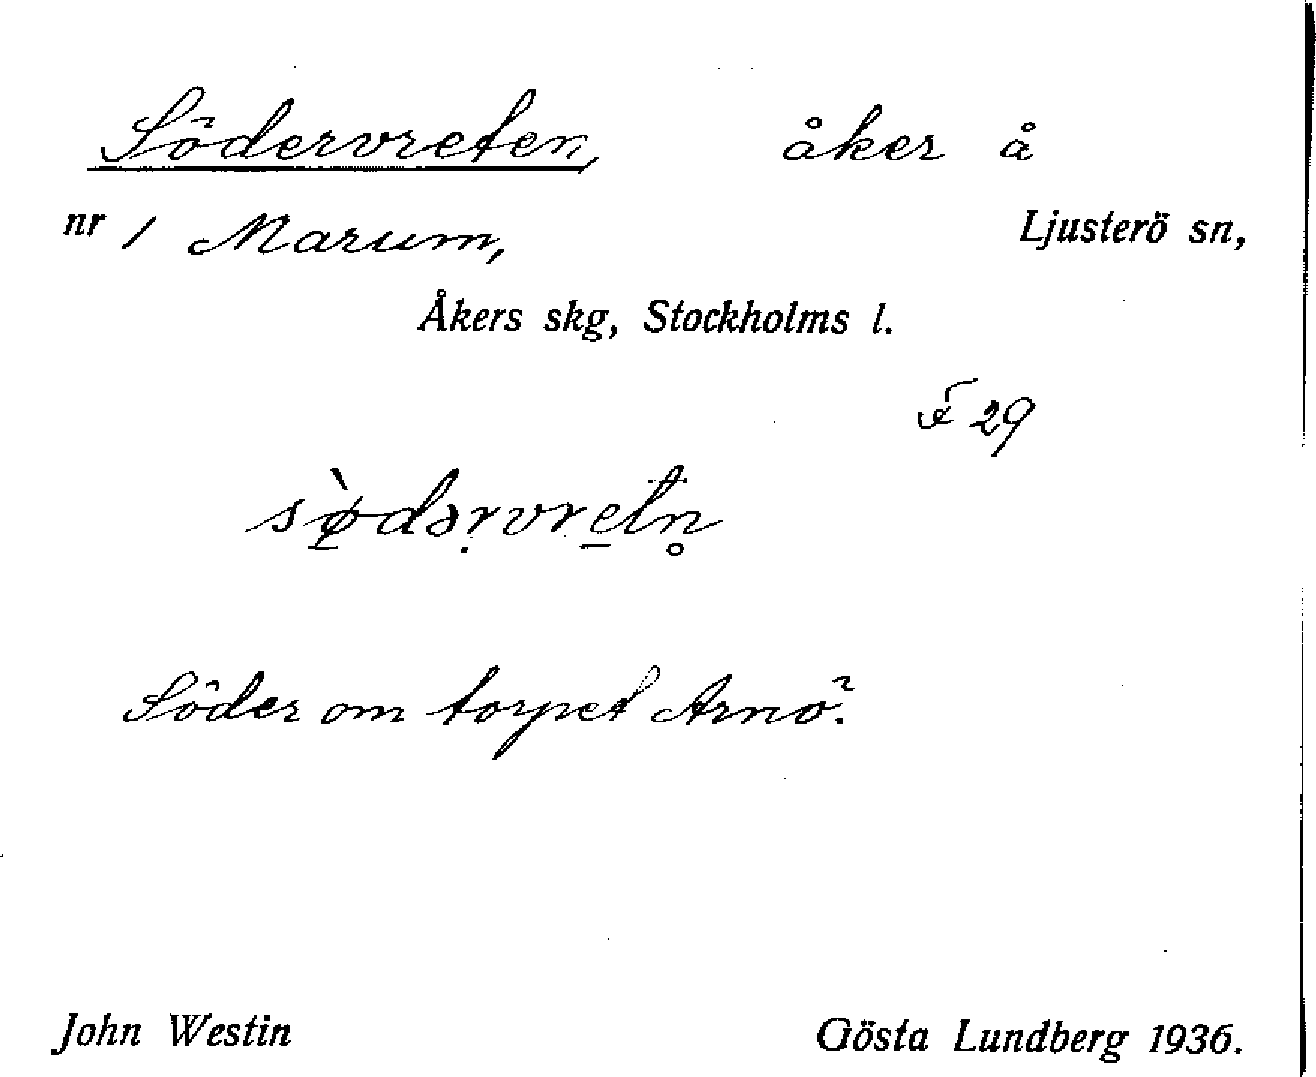 Södervreten, åker å
nr 1 Marum, Ljusterö sn,
Åkers skg, Stockholms l.
F 29
sø̀dərvretn̥
Söder om torpet Arnö.
John Westin Gösta Lundberg 1936.